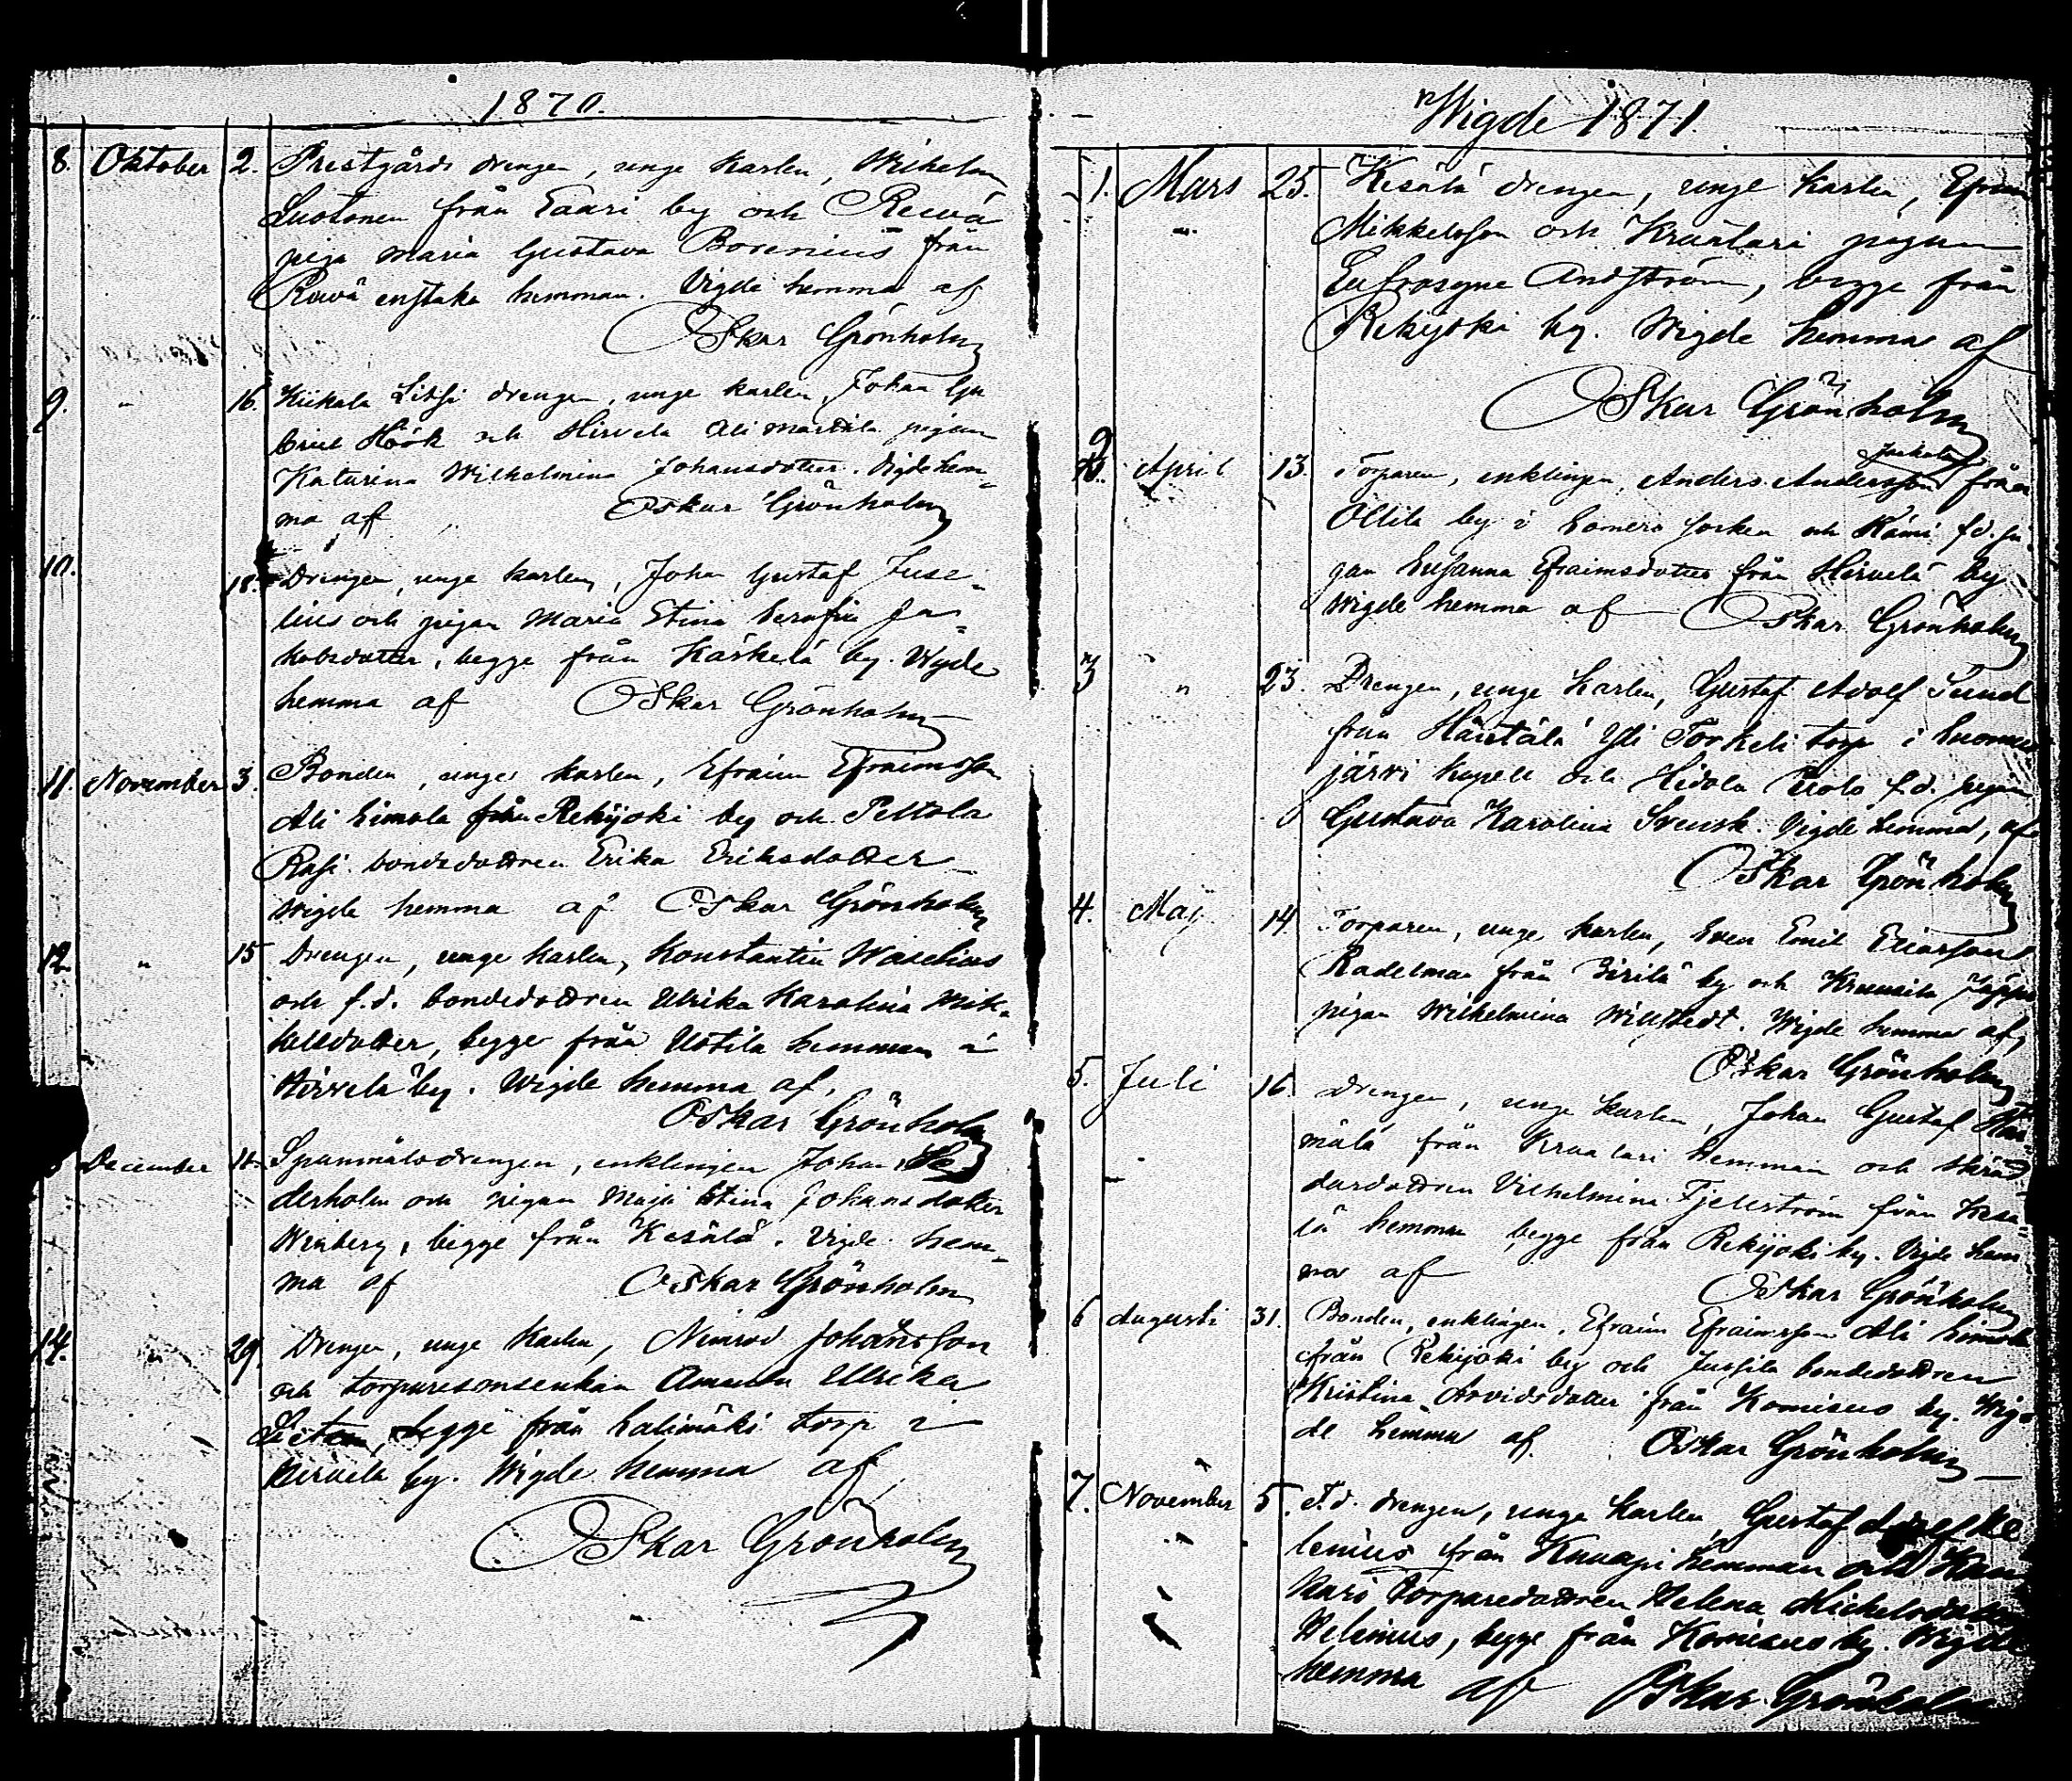 1870.
8. Oktober 2. Prestgårds drengen, unge karlen, Wilhelm
Luotonen från Saari by och Rewä
piga Maria Gustava Borenius från
Rewä enstaka hemman. Vigde hemma af
Oskar Grönholm
9. " 16. Kiikala drengen, unge karlen, Johan Ga
briel Höök och Hirvela Ali Marttila pigan
Katarina Wilhelmina Johansdotter. Vigde hem-
ma af Oskar Grönholm
10. 18. Drengen, unge karlen, Johan Gustaf Juse-
lius och pigan Maria Stina Serafia Ja-
kobsdotter, begge från Kärkelä by. Wigde
hemma af Oskar Grönholm
11. November 3. Bonden, unge karlen, Efraim Efraimsson
Ali Simola från Rekijoki by och Peltola
Rasi bondedottren Erika Eriksdotter
Wigde hemma af Oskar Grönholm
12. " 15 Drengen, unge karlen, Konstantin Waselius
och f.d. bondedottren Ulrika Karolina Mik-
kelsdotter, begge från Uotila hemman i
Hirvelä by. Wigde hemma af,
Oskar Grönholm
December 11. Spannmålsdrengen, enklingen Johan Se
derholm och pigan Maja Stina Johansdotter
Winberg, begge från Kesälä. Vigde hem-
ma af Oskar Grönholm
14. " 29. Drengen, unge karlen, Nimrod Johansson
och torparesonsenkan Amanda Ulrika
begge från Salimäki torp i
Hirvelä by. Wigde hemma af
Oskar Grönholm
Wigde 1871.
1. Mars 25. Kesälä drengen, unge karlen, Efraim
Mikkelsson och Kruutari pigan
Eufrosyne Andström, begge från
Rekijoki by. Wigde hemma af
Oskar Grönholm
2. April 13. Torparen, enklingen Anders Andersson från
Ollila by i Somero socken och Kämi f.d. pi
gan Susanna Efraimsdotter från Hirvelä by
Wigde hemma af Oskar Grönholm
3 " 23. Drengen, unge karlen, Gustaf Adolf Sund
från Häntälä Yli Torkeli torp i Suomus
järvi kapell och Hidola f.d. pigan
Gustava Karolina Svensk. Vigde hemma, af
Oskar Grönholm
4. Maj 14 Torparen, unge karlen, Sven Emil Ericsson
Radelman från by och
pigan Wilhelmina Willstedt. Wigde hemma af,
Oskar Grönholm
5. Juli 16. Drengen, unge karlen, Johan Gustaf
mälä från Kruutari hemman och skräd-
daredottren Vilhelmina Fjellström från Kesä-
lä hemman begge från Rekijoki by. Vigde hem-
ma af Oskar Grönholm
6 Augusti 31. Bonden, enklingen, Efraim Efraimsson Ali Simola
från Rekijoki by och Jussila bondedottren
Kristina Arvidsdotter från Komisuo by. Wig-
de hemma af Oskar Grönholm
7. November 5. F.d. drengen, unge karlen, Gustaf Adolf He
lenius från Knaapi hemman och
torparedottren Helena Michelsdotter
Helenius, begge från Komisuo by. Wigde
hemma af Oskar Grönholm